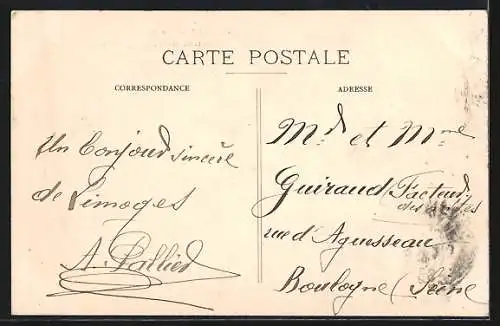 CARTE POSTALE
CORRESPONDANCE
ADRESSE
Un Bonjour sincère
de Limoges
A. Pallier
Mr et Mme
Guiraud Facteur
des
rue d'Aguesseau
Boulogne (Seine